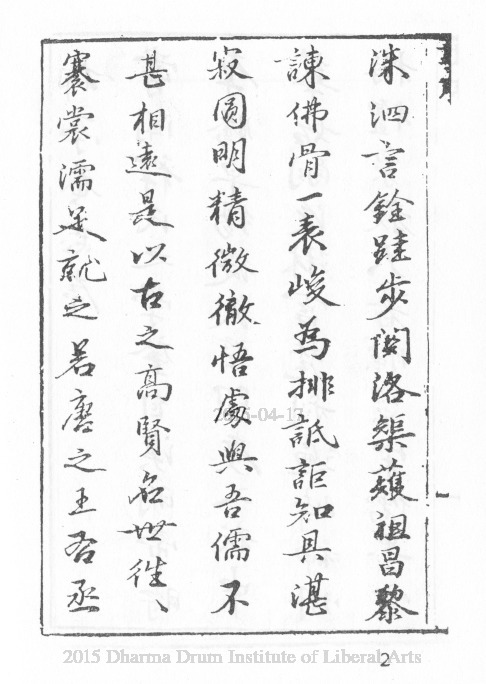 洙泗言銓跬步閩洛榘蠖祖昌黎
諫佛骨一表峻為排詆詎知具湛
寂圓明精微徹悟處與吾儒不
甚相遠是以古之高賢名世往〻
褰裳濡足就之若唐之王右丞
2015 Dharma Drum Institute of Liberal Arts
2